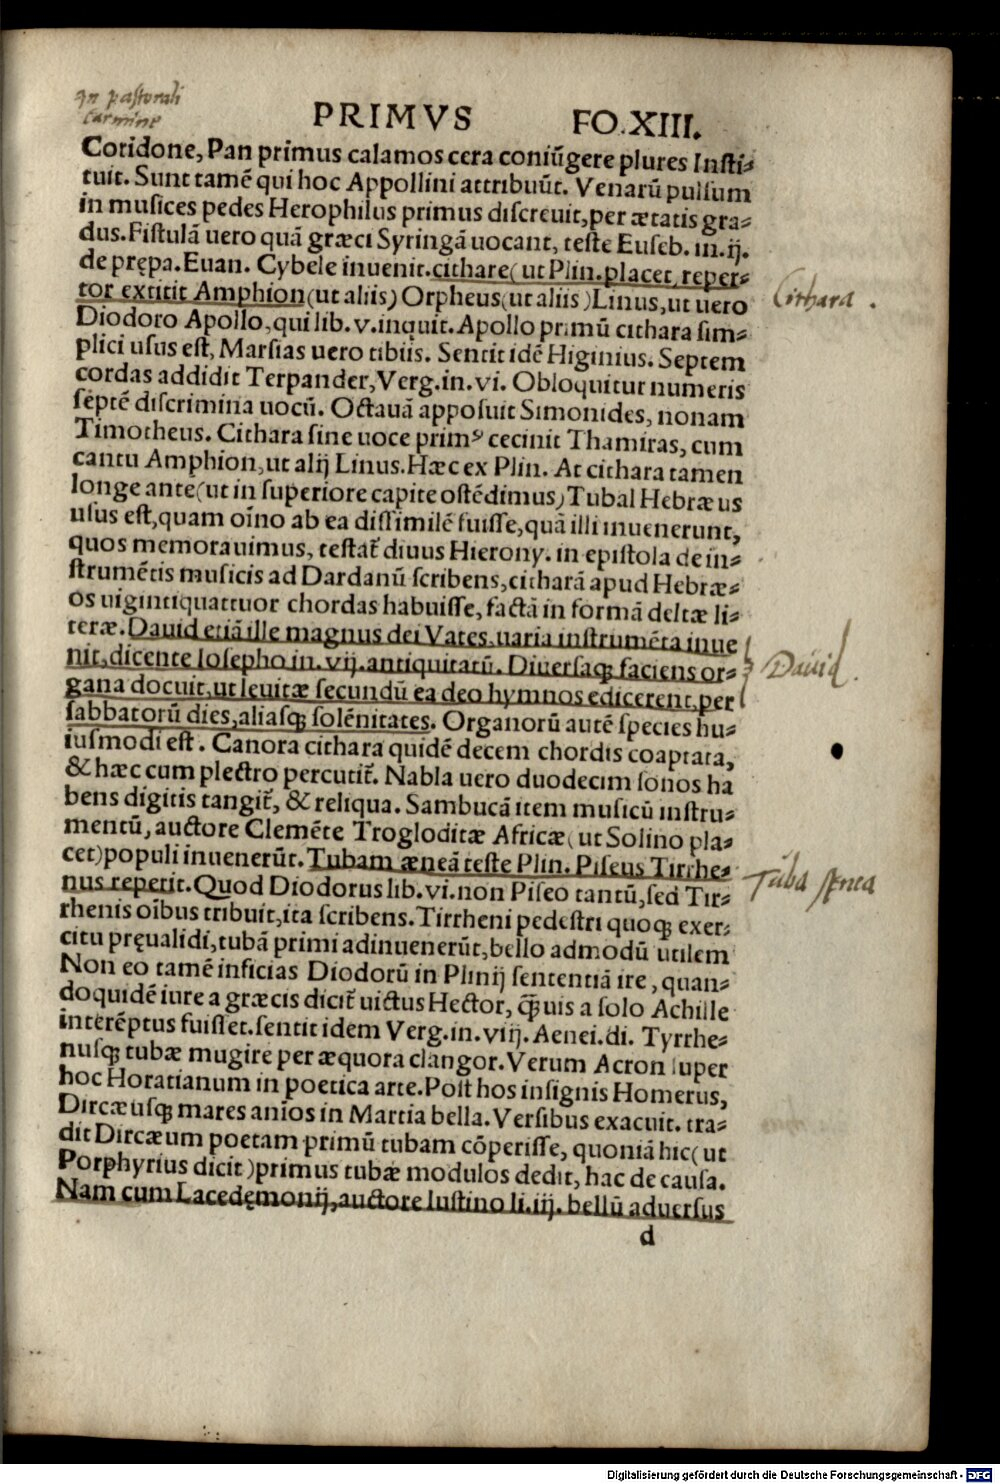 In pastorali
carmine
PRIMVS FO.XIII.
Coridone, Pan primus calamos cera coniũgere plures Insti⸗
tuit. Sunt tamẽ qui hoc Appollini attribuũt. Venarũ pulsum
in musices pedes Herophilus primus discreuit, per ætatis gra⸗
dus. Fistulã uero quã græci Syringã uocant, teste Euseb. in. ij.
de prępa. Euan. Cybele inuenit. cithare (ut Plin. placet, reper⸗
tor extitit Amphion (ut aliis) Orpheus (ut aliis) Linus, ut uero
Cithara .
Diodoro Apollo, qui lib. v. inquit. Apollo primũ cithara sim⸗
plici usus est, Marsias uero tibiis. Sentit idẽ Higinius. Septem
cordas addidit Terpander, Verg. in. vi. Obloquitur numeris
septẽ discrimina uocũ. Octauã apposuit Simonides, nonam
Timotheus. Cithara sine uoce primꝰ cecinit Thamiras, cum
cantu Amphion, ut alij Linus. Hæc ex Plin. At cithara tamen
longe ante (ut in superiore capite ostẽdimus) Tubal Hebræus
usus est, quam oĩno ab ea dissimilẽ fuisse, quã illi inuenerunt,
quos memorauimus, testat̃ diuus Hierony. in epistola de in⸗
strumẽtis musicis ad Dardanũ scribens, citharã apud Hebræ⸗
os uigintiquattuor chordas habuisse, factã in formã deltæ li⸗
teræ. Dauid etiã ille magnus dei Vates, uaria instrumẽta inue
nit, dicente Iosepho in. vij. antiquitatũ. Diuersaq; faciens or⸗
Dauid.
gana docuit, ut leuitæ secundũ ea deo hymnos edicerent, per
sabbatorũ dies, aliasq; solẽnitates. Organorũ autẽ species hu⸗
iusmodi est. Canora cithara quidẽ decem chordis coaptata,
& hæc cum plectro percutit̃. Nabla uero duodecim sonos ha
bens digitis tangit̃, & reliqua. Sambucã item musicũ instru⸗
mentũ, auctore Clemẽte Trogloditæ Africæ (ut Solino pla⸗
cet) populi inuenerũt. Tubam æneã teste Plin. Piseus Tirrhe⸗
nus reperit. Quod Diodorus lib. vi. non Piseo tantũ, sed Tir⸗
Tuba
rhenis oĩbus tribuit, ita scribens. Tirrheni pedestri quoq; exer⸗
citu pręualidi, tubã primi adinuenerũt, bello admodũ utilem
Non eo tamẽ inficias Diodorũ in Plinij sententiã ire, quan⸗
doquidẽ iure a græcis dicit̃ uictus Hector, q̃uis a solo Achille
interẽptus fuisset. sentit idem Verg. in. viij. Aenei. di. Tyrrhe⸗
nusq; tubæ mugire per æquora clangor. Verum Acron super
hoc Horatianum in poetica arte. Post hos insignis Homerus,
Dircæusq; mares anĩos in Martia bella. Versibus exacuit. tra⸗
dit Dircæum poetam primũ tubam cõperisse, quoniã hic (ut
Porphyrius dicit) primus tubæ modulos dedit, hac de causa.
Nam cum Lacedęmonij, auctore Iustino li. iij. bellũ aduersus
d
Digitalisierung gefördert durch die Deutsche Forschungsgemeinschaft - DFG